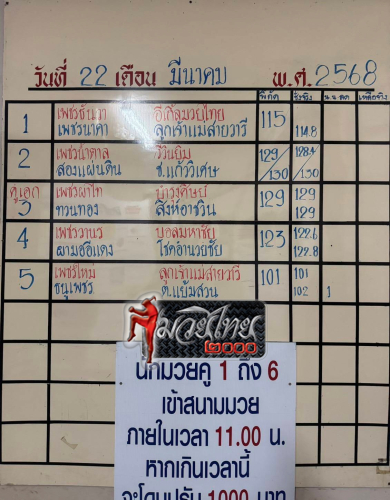 วันที่ 22 เดือน มีนาคม พ.ศ. 2568
พิกัด ชั่งจริง น.น.ลด เหลือจริง
1 เพชรธันวา อีเกิ้ลมวยไทย 115
เพชรนาคา ลูกเจ้าแม่สายวารี 114.8
2 เพชรน้ำตาล วีวันยิม 129/130 128.4/130
สองแผ่นดิน ช.แก้ววิเศษ
คู่เอก
3 เพชรผาไท บำรุงศิษย์ 129 129
ทวนทอง สิงห์อาชวิน 129
4 เพชรวานร บอลมหาชัย 123 122.6
ผามออีแดง โชคอำนวยชัย 122.8
5 เพชรใหม่ ลูกเจ้าแม่สายวารี 101 101
ธนูเพชร ต.แย้มสวน 102 1
มวยไทย
2000
นักมวยคู่ 1 ถึง 6
เข้าสนามมวย
ภายในเวลา 11.00 น.
หากเกินเวลานี้
จะโดนปรับ 1000 บาท